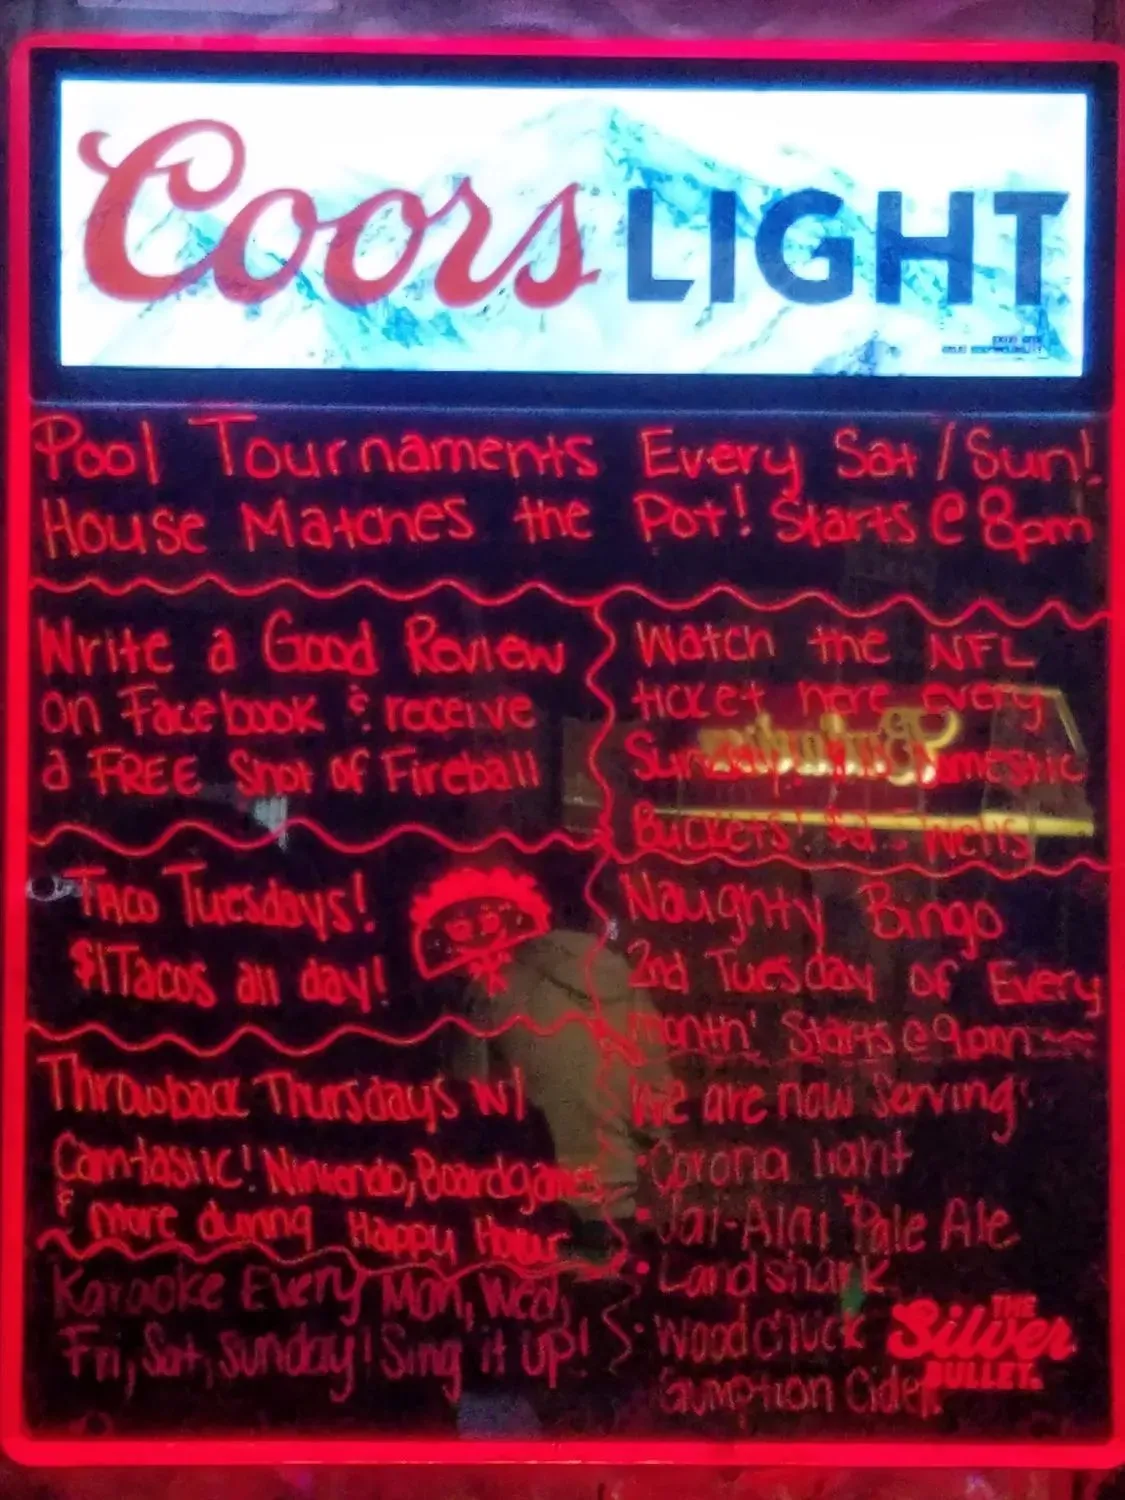 Coors LIGHT
Pool Tournaments Every Sat/Sun!
House Matches the Pot! Starts @ 8pm
Write a Good Review
on Facebook & receive
a FREE Shot of Fireball
Watch the NFL
ticket here every
Sunday! Domestic
Buckets! Wells
Taco Tuesdays!
$1 Tacos all day!
Naughty Bingo
2nd Tuesday of Every
month! Starts @ 9pm
Throwback Thursdays w/
Cam-tastic! Nintendo, Boardgames
& more during Happy Hour
Karaoke Every Mon, Wed,
Fri, Sat, Sunday! Sing it up!
We are now Serving:
• Corona light
• Jai-Alai Pale Ale
• Landshark
• Woodchuck
Gumption Cider
THE
Silver
BULLET.